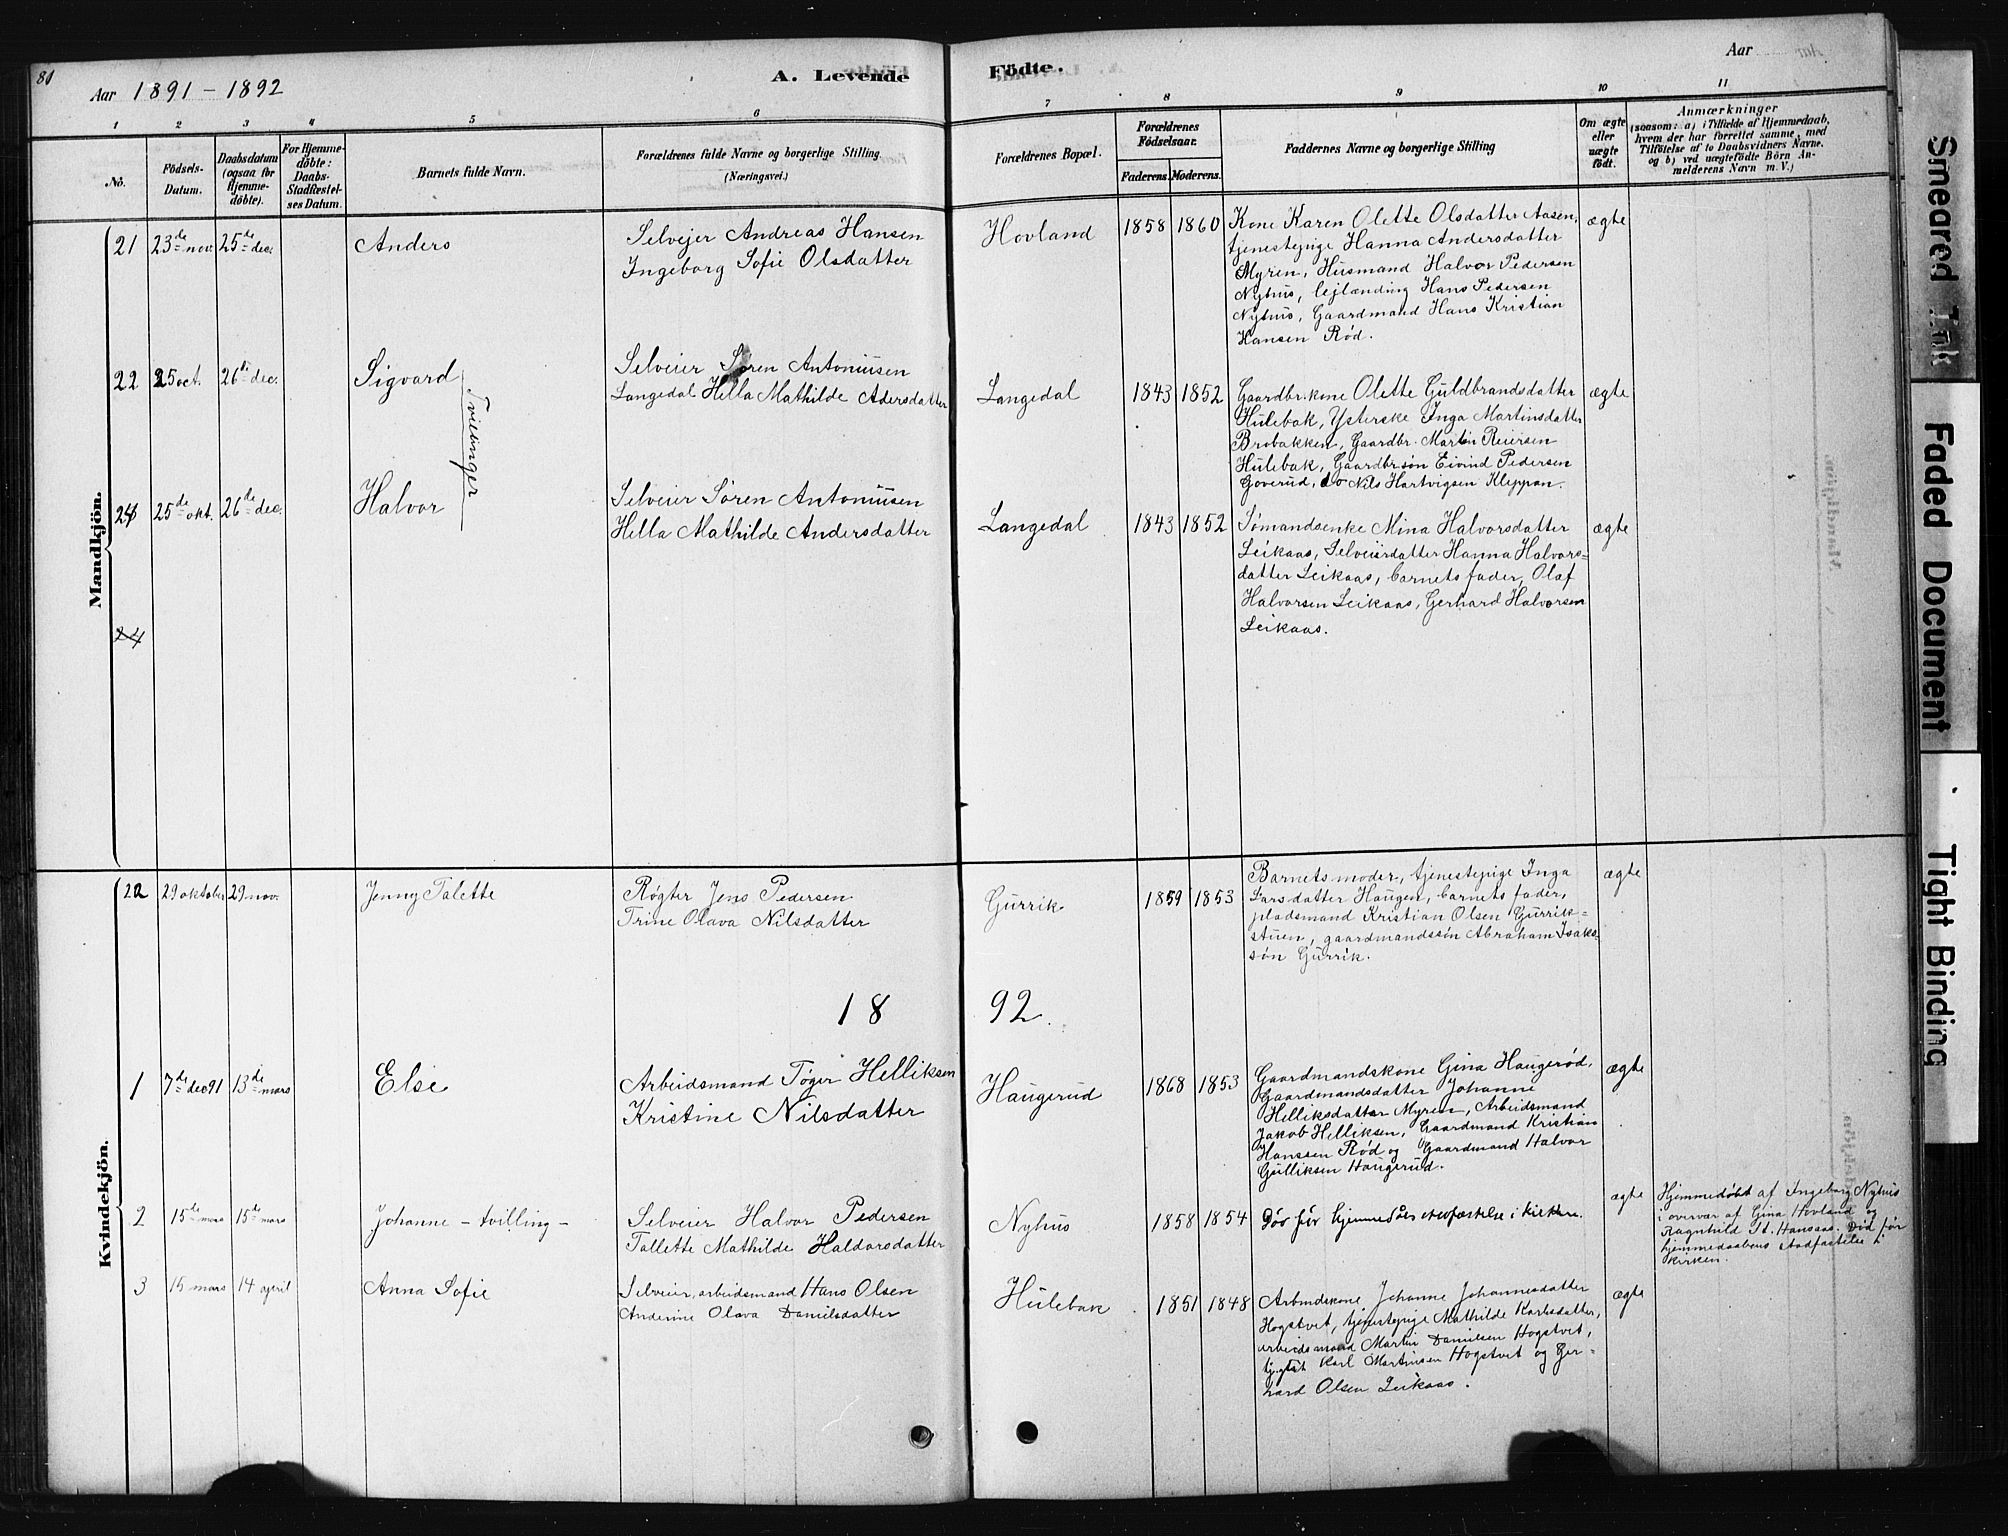 81
Aar 1891 - 1892
A. Levende
Födte.
Aar
1 2 3 4 5 6 7 8 9 10 11
No.
Födsels-
Datum.
Daabsdatum
(ogsaa for
Hjemme-
döbte).
For Hjemme-
döbte:
Daabs-
Stadfæstel-
ses Datum.
Barnets fulde Navn.
Forældrenes fulde Navne og borgerlige Stilling
(Næringsvei.)
Forældrenes Bopæl.
Forældrenes
Födselsaar.
Faderens. Moderens.
Faddernes Navne og borgerlige Stilling
Om ægte
eller
uægte
födt.
Anmærkninger
(saasom: a) i Tilfælde af Hjemmedaab,
hvem der har forrettet samme, med
Tilföielse af to Daabsvidners Navne.
og b) ved uægtefödte Börn An-
melderens Navn m. V.)
Mandkjön.
21 23de nov. 25de dec. Anders
Selvejer Andreas Hansen
Ingeborg Sofie Olsdatter
Hovland 1858 1860
Kone Karen Olette Olsdatter Aasen,
tjenestepige Hanna Andersdatter
Myren, Husmand Halvor Pedersen
Nyhus, lejlænding Hans Pedersen
Nyhus, Gaardmand Hans Kristian
Hansen Rød.
ægte
22 25 oct. 26de dec. Sigvard
Tvillinger
Selveier Søren Antoniusen
Langedal Hella Mathilde Adersdatter
Langedal 1843 1852
Gaardbr.kone Olette Guldbrandsdatter
Hulebak, Ysterske Inga Martinsdatter
Brobakken, Gaardbr. Martin Reiersen
Hulebak, Gaardbrsøn Eivind Pedersen
Goverud, do Nils Hartvigsen Kleppan.
ægte
24 25de okt. 26de dec. Halvor
Selveier Søren Antoniusen
Hella Mathilde Andersdatter
Langedal 1843 1852
Sømandsenke Mina Halvorsdatter
Leikaas, Selveierdatter Hanna Halvors=
datter Leikaas, barnets fader, Olaf
Halvorsen Leikaas, Gerhard Halvorsen
Leikaas.
ægte
24
Kvindekjön.
22 29 oktober 29 nov. Jenny Talette
Røgter Jens Pedersen
Trine Olava Nilsdatter
Gurrik 1859 1853
Barnets moder, tjenestepige Inga
Larsdatter Haugen, barnets fader,
pladsmand Kristian Olsen Gurrik=
stuen, gaardmandssøn Abraham Isaks
søn Gurrik.
ægte
18 92.
1 7de dec 91 13de mars Else
Arbeidsmand Tøger Helliksen
Kristine Nilsdatter
Haugerud 1868 1853
Gaardmandskone Gina Haugerød,
Gaardmandsdatter Johanne
Helliksdatter Myren, Arbeidsmand
Jakob Helliksen, Gaardmand Kristian
Hanssen Rød og Gaardmand Halvor
Gulliksen Haugerud.
ægte
2 15de mars 15de mars Johanne - tvilling -
Selveier Halvor Pedersen
Tallette Mathilde Haldorsdatter
Nyhus 1858 1854
Død før hjemmed stadfæstelse i kirken.
ægte
Hjemmedøbt af Ingeborg Nyhus
i overvær af Gina Hovland og
Ragnhild St. Hansaas. Død før
hjemmedaabens stadfæstelse i
kirken.
3 15 mars 14 april Anna Sofie
Selveier, arbeidsmand Hans Olsen
Anderine Olava Danielsdatter
Hulebak 1851 1848
Arbeidskone Johanne Johannesdatter
Hogstvet, tjenestepige Mathilde Karlsdatter,
arbeidsmand Martin Danielsen Hogstvet,
Karl Martinsen Hogstvet og Ger=
hard Olsen Leikaas.
ægte
Smeared Ink
Faded Document
Tight Binding